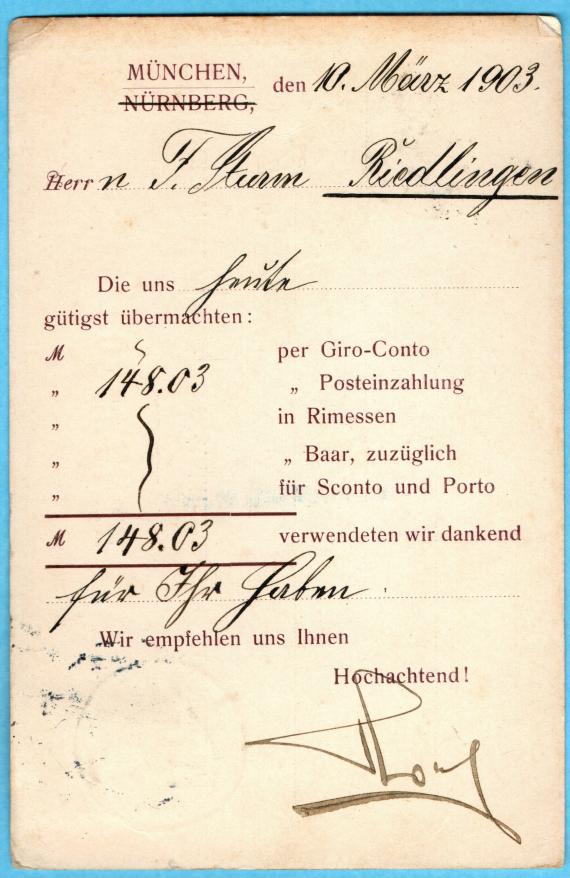 MÜNCHEN,
NÜRNBERG,
den 10. März 1903.
Herrn F. Sturm Riedlingen
Die uns heute
gütigst übermachten:
M per Giro-Conto
„ 148.03 „ Posteinzahlung
„ in Rimessen
„ „ Baar, zuzüglich
„ für Sconto und Porto
M 148.03 verwendeten wir dankend
für Ihr Haben.
Wir empfehlen uns Ihnen
Hochachtend!